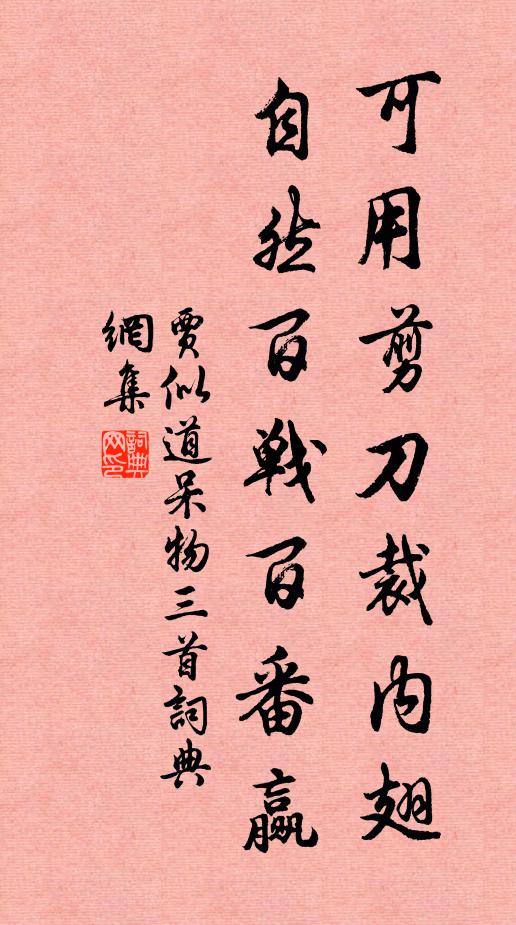 可用剪刀裁内翅
自然百戰百番贏
賈似道呆物三首詞典
網集
詞典
网印